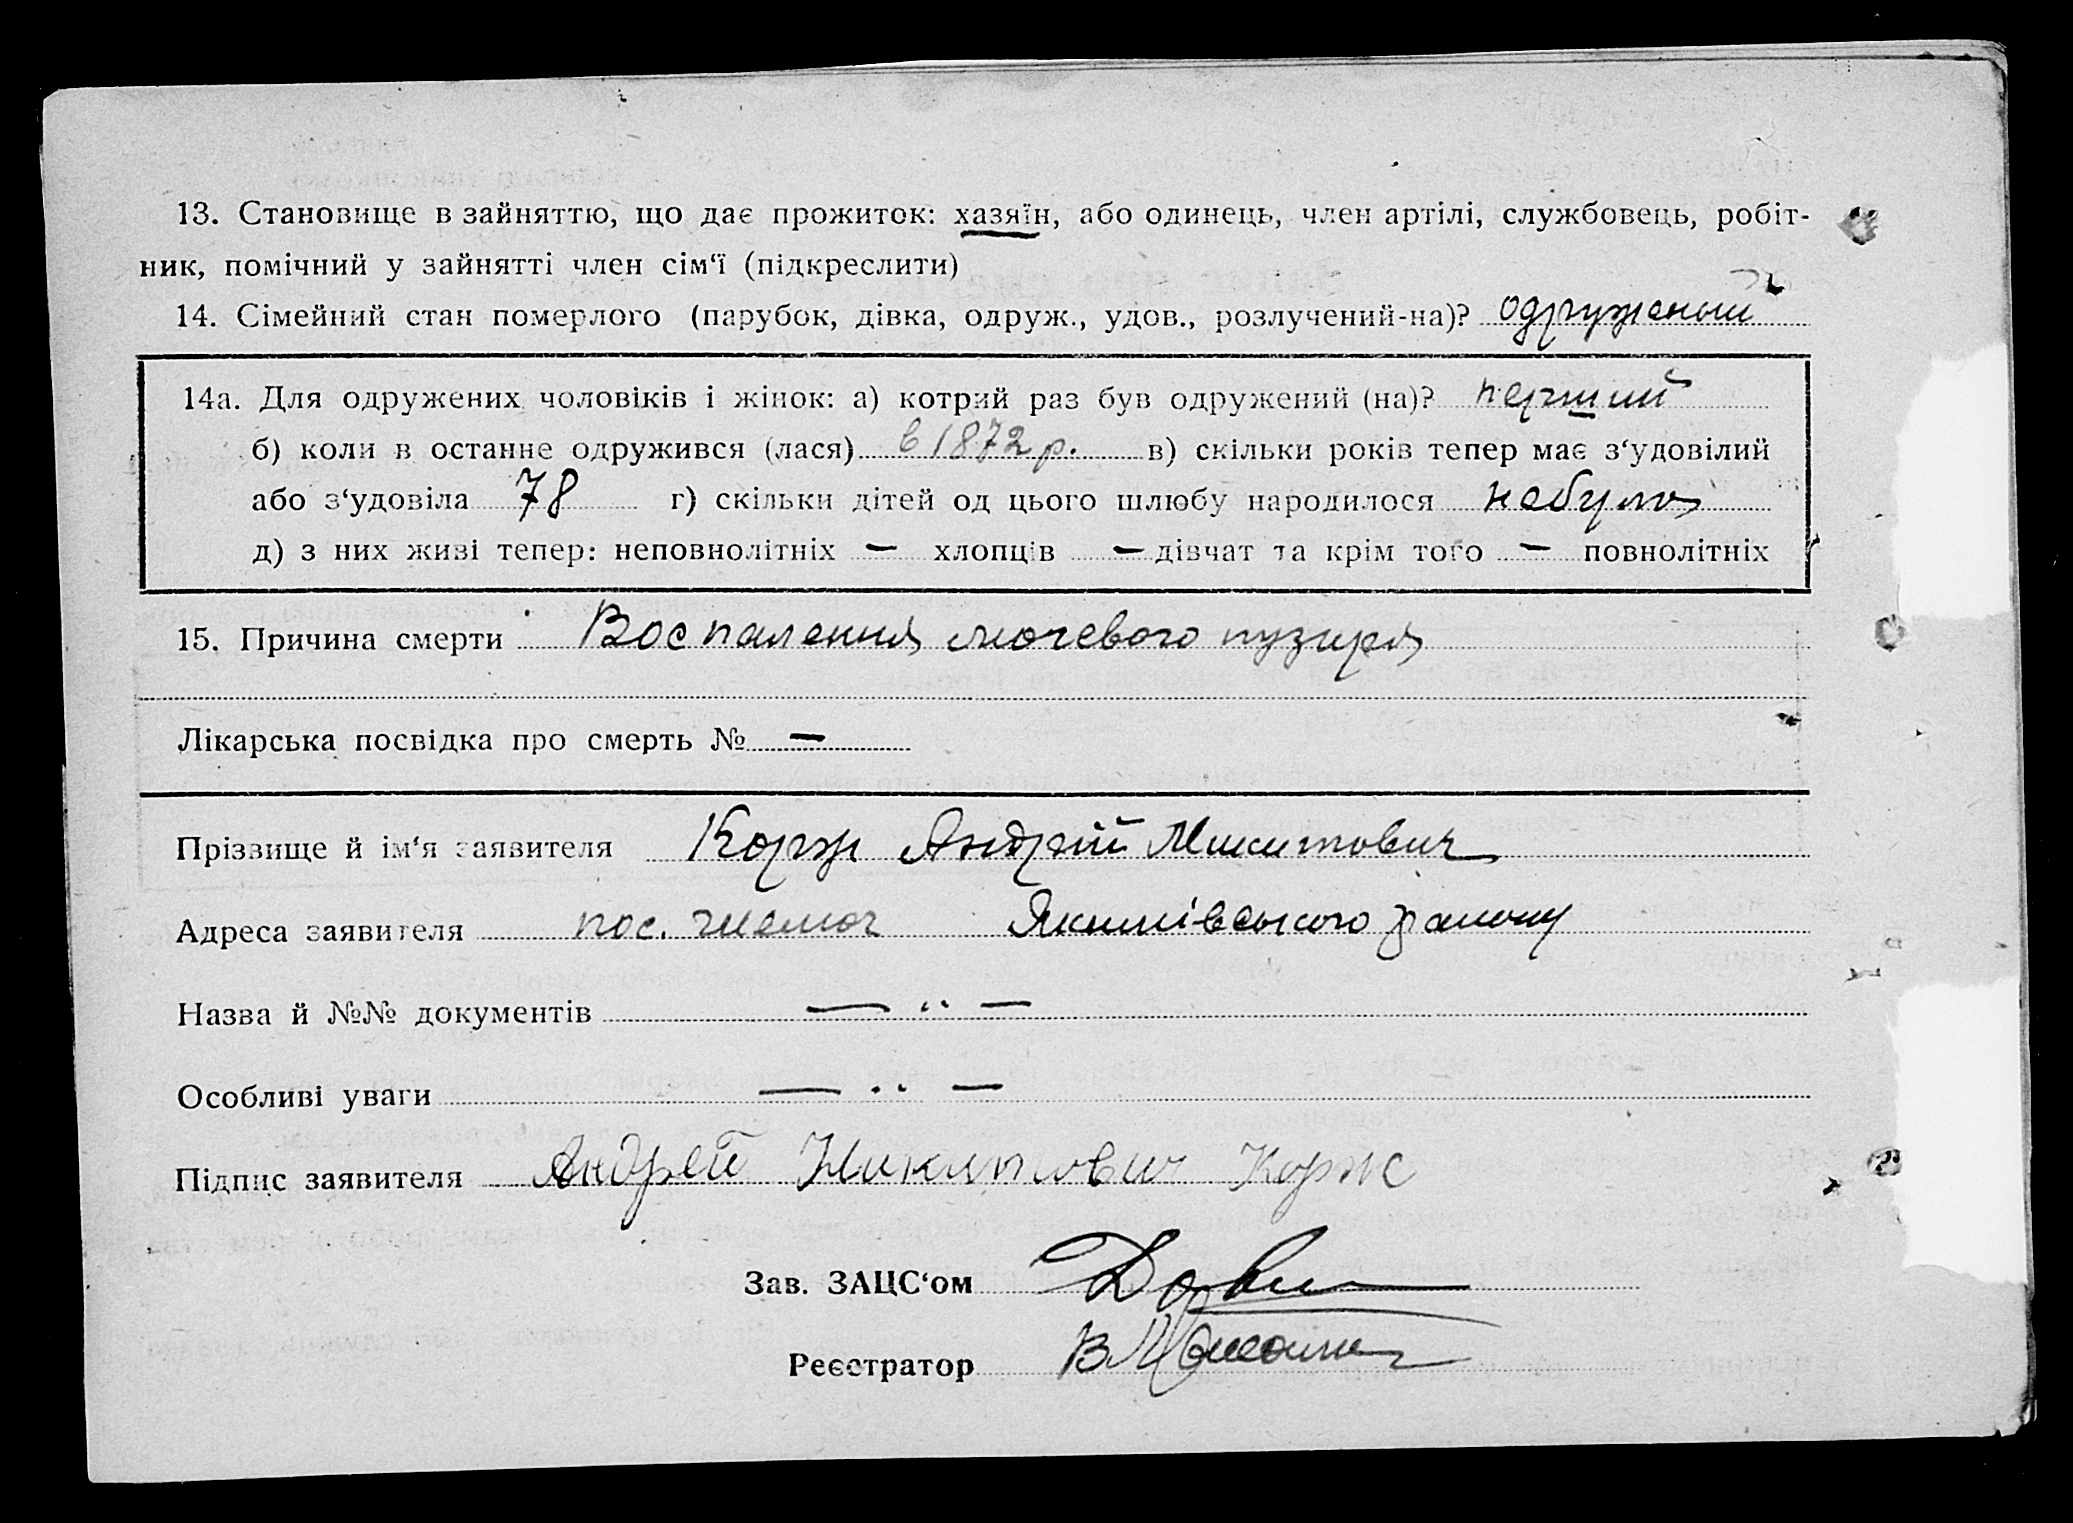 13. Становище в зайняттю, що дає прожиток: хазяїн, або одинець, член артілі, службовець, робіт-
ник, помічний у зайнятті член сім‘ї (підкреслити)
14. Сімейний стан померлого (парубок, дівка, одруж., удов., розлучений-на)? одружений
14а. Для одружених чоловіків і жінок: а) котрий раз був одружений (на)? перший
б) коли в останне одружився (лася) в 1872 р. в) скільки років тепер має з‘удовілий
або з‘удовіла 78 г) скільки дітей од цього шлюбу народилося небуло
д) з них живі тепер: неповнолітніх — хлопців — дівчат та крім того — повнолітніх
15. Причина смерти Воспалення мочевого пузиря
Лікарська посвідка про смерть № —
Прізвище й ім‘я заявителя Корж Андрій Микитович
Адреса заявителя пос. Якимівського району
Назва й №№ документів — ·· —
Особливі уваги — ·· —
Підпис заявителя Андрей Никитович Корж
Зав. ЗАЦС‘ом
Реєстратор